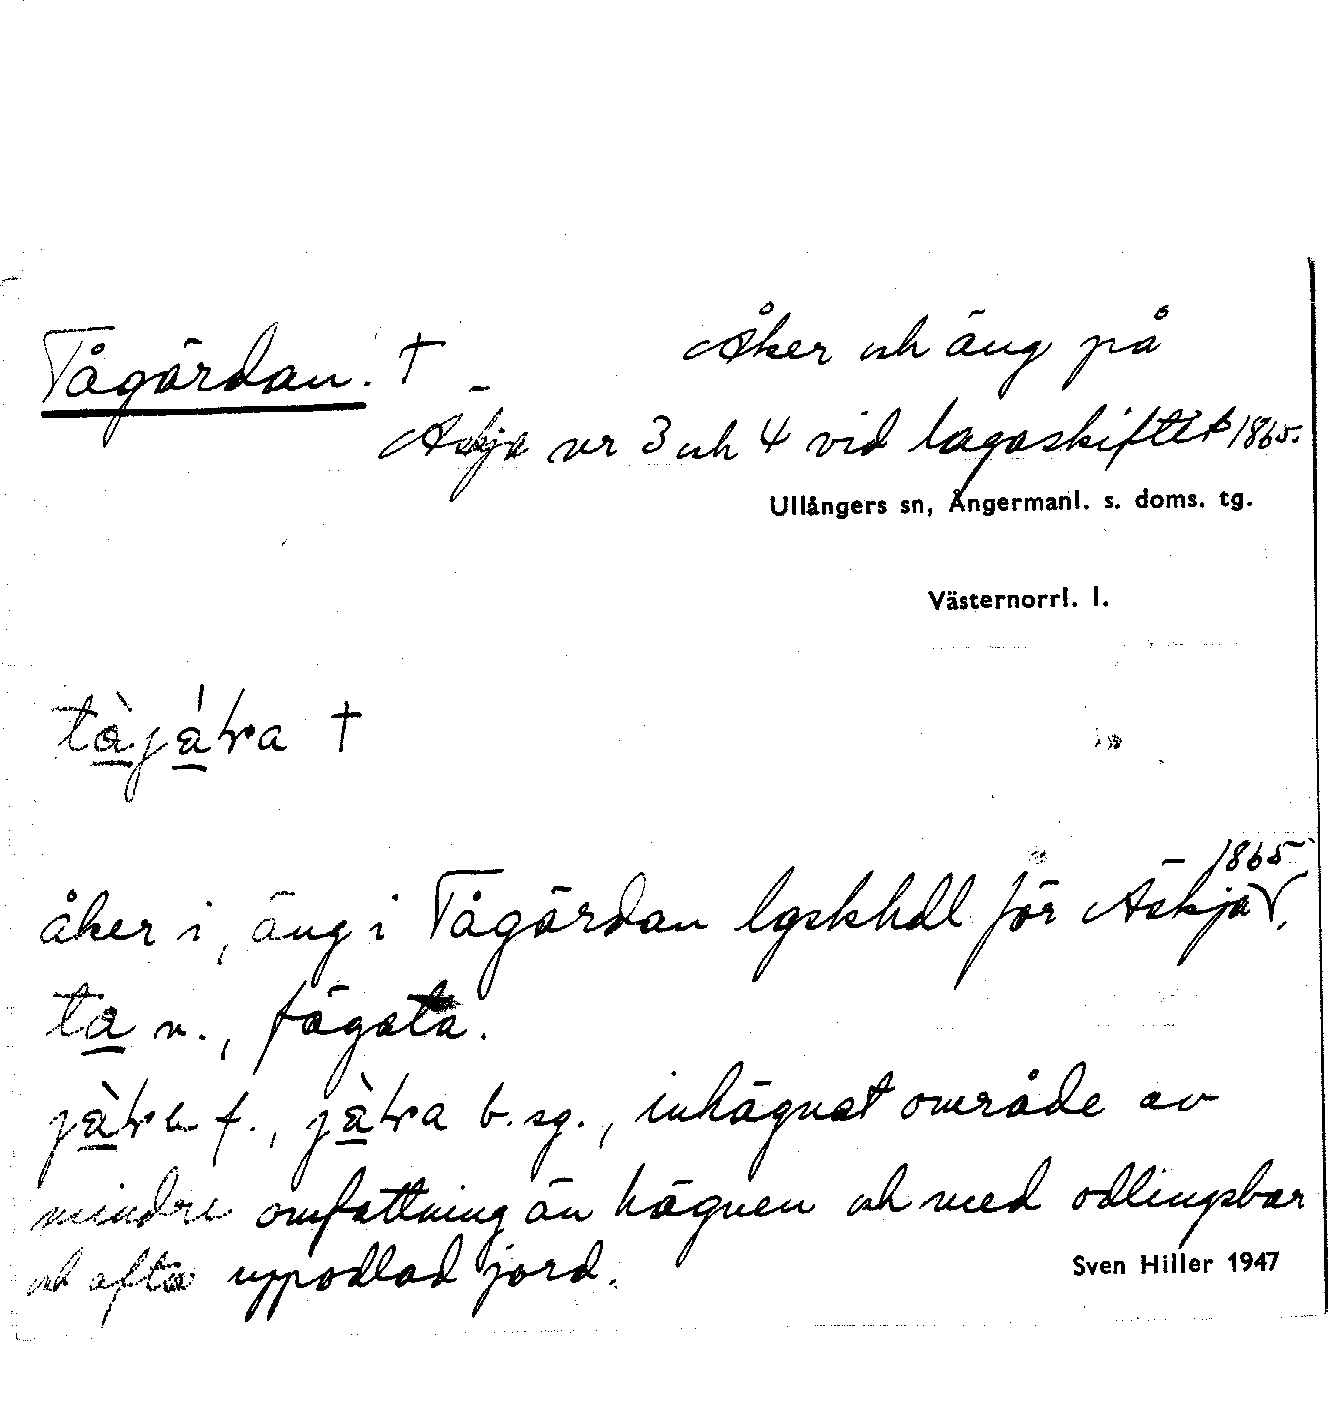 Tågärdan. †
Åker och äng på
Äskja nr 3 och 4 vid lagaskiftet 1865.
Ullångers sn, Ångermanl. s. doms. tg.
Västernorrl. l.
†
åker i, äng i Tågärdan lgskhdl för Äskja 1865.
ta n., fägata.
f., b. sg., inhägnat område av
mindre omfattning än hägnen och med odlingsbar
och ofta uppodlad jord.
Sven Hiller 1947